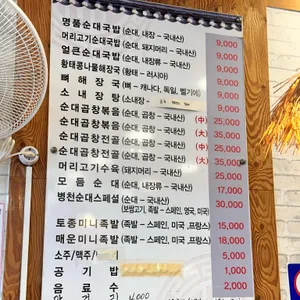 명품순대국밥 (순대, 내장 ~ 국내산) 9,000
머리고기순대국밥 (순대, 돼지머리 ~ 국내산) 9,000
얼큰순대국밥 (순대, 내장류 ~ 국내산) 9,000
황태콩나물해장국 (황태 ~ 러시아) 9,000
뼈해장국 (뼈 ~ 캐나다, 독일, 벨기에) 9,000
소내장탕 (소내장 ~ 9,000
순대곱창볶음 (순대, 곱창 ~ 국내산) (中) 25,000
순대곱창볶음 (순대, 곱창 ~ 국내산) (大) 35,000
순대곱창전골 (순대, 곱창 ~ 국내산) (中) 25,000
순대곱창전골 (순대, 곱창 ~ 국내산) (大) 35,000
머리고기수육 (돼지머리 ~ 국내산) 25,000
모듬순대 (순대, 내장류 ~ 국내산) 17,000
병천순대스페셜 (순대, 내장류 ~ 국내산) 30,000
(보쌈고기, 족발 ~ 스페인, 영국, 미국)
토종미니족발 (족발 ~ 스페인, 미국, 프랑스) 15,000
매운미니족발 (족발 ~ 스페인, 미국, 프랑스) 18,000
소주/맥주/ 5,000
공기밥 1,000
음료수 2,000
4,000